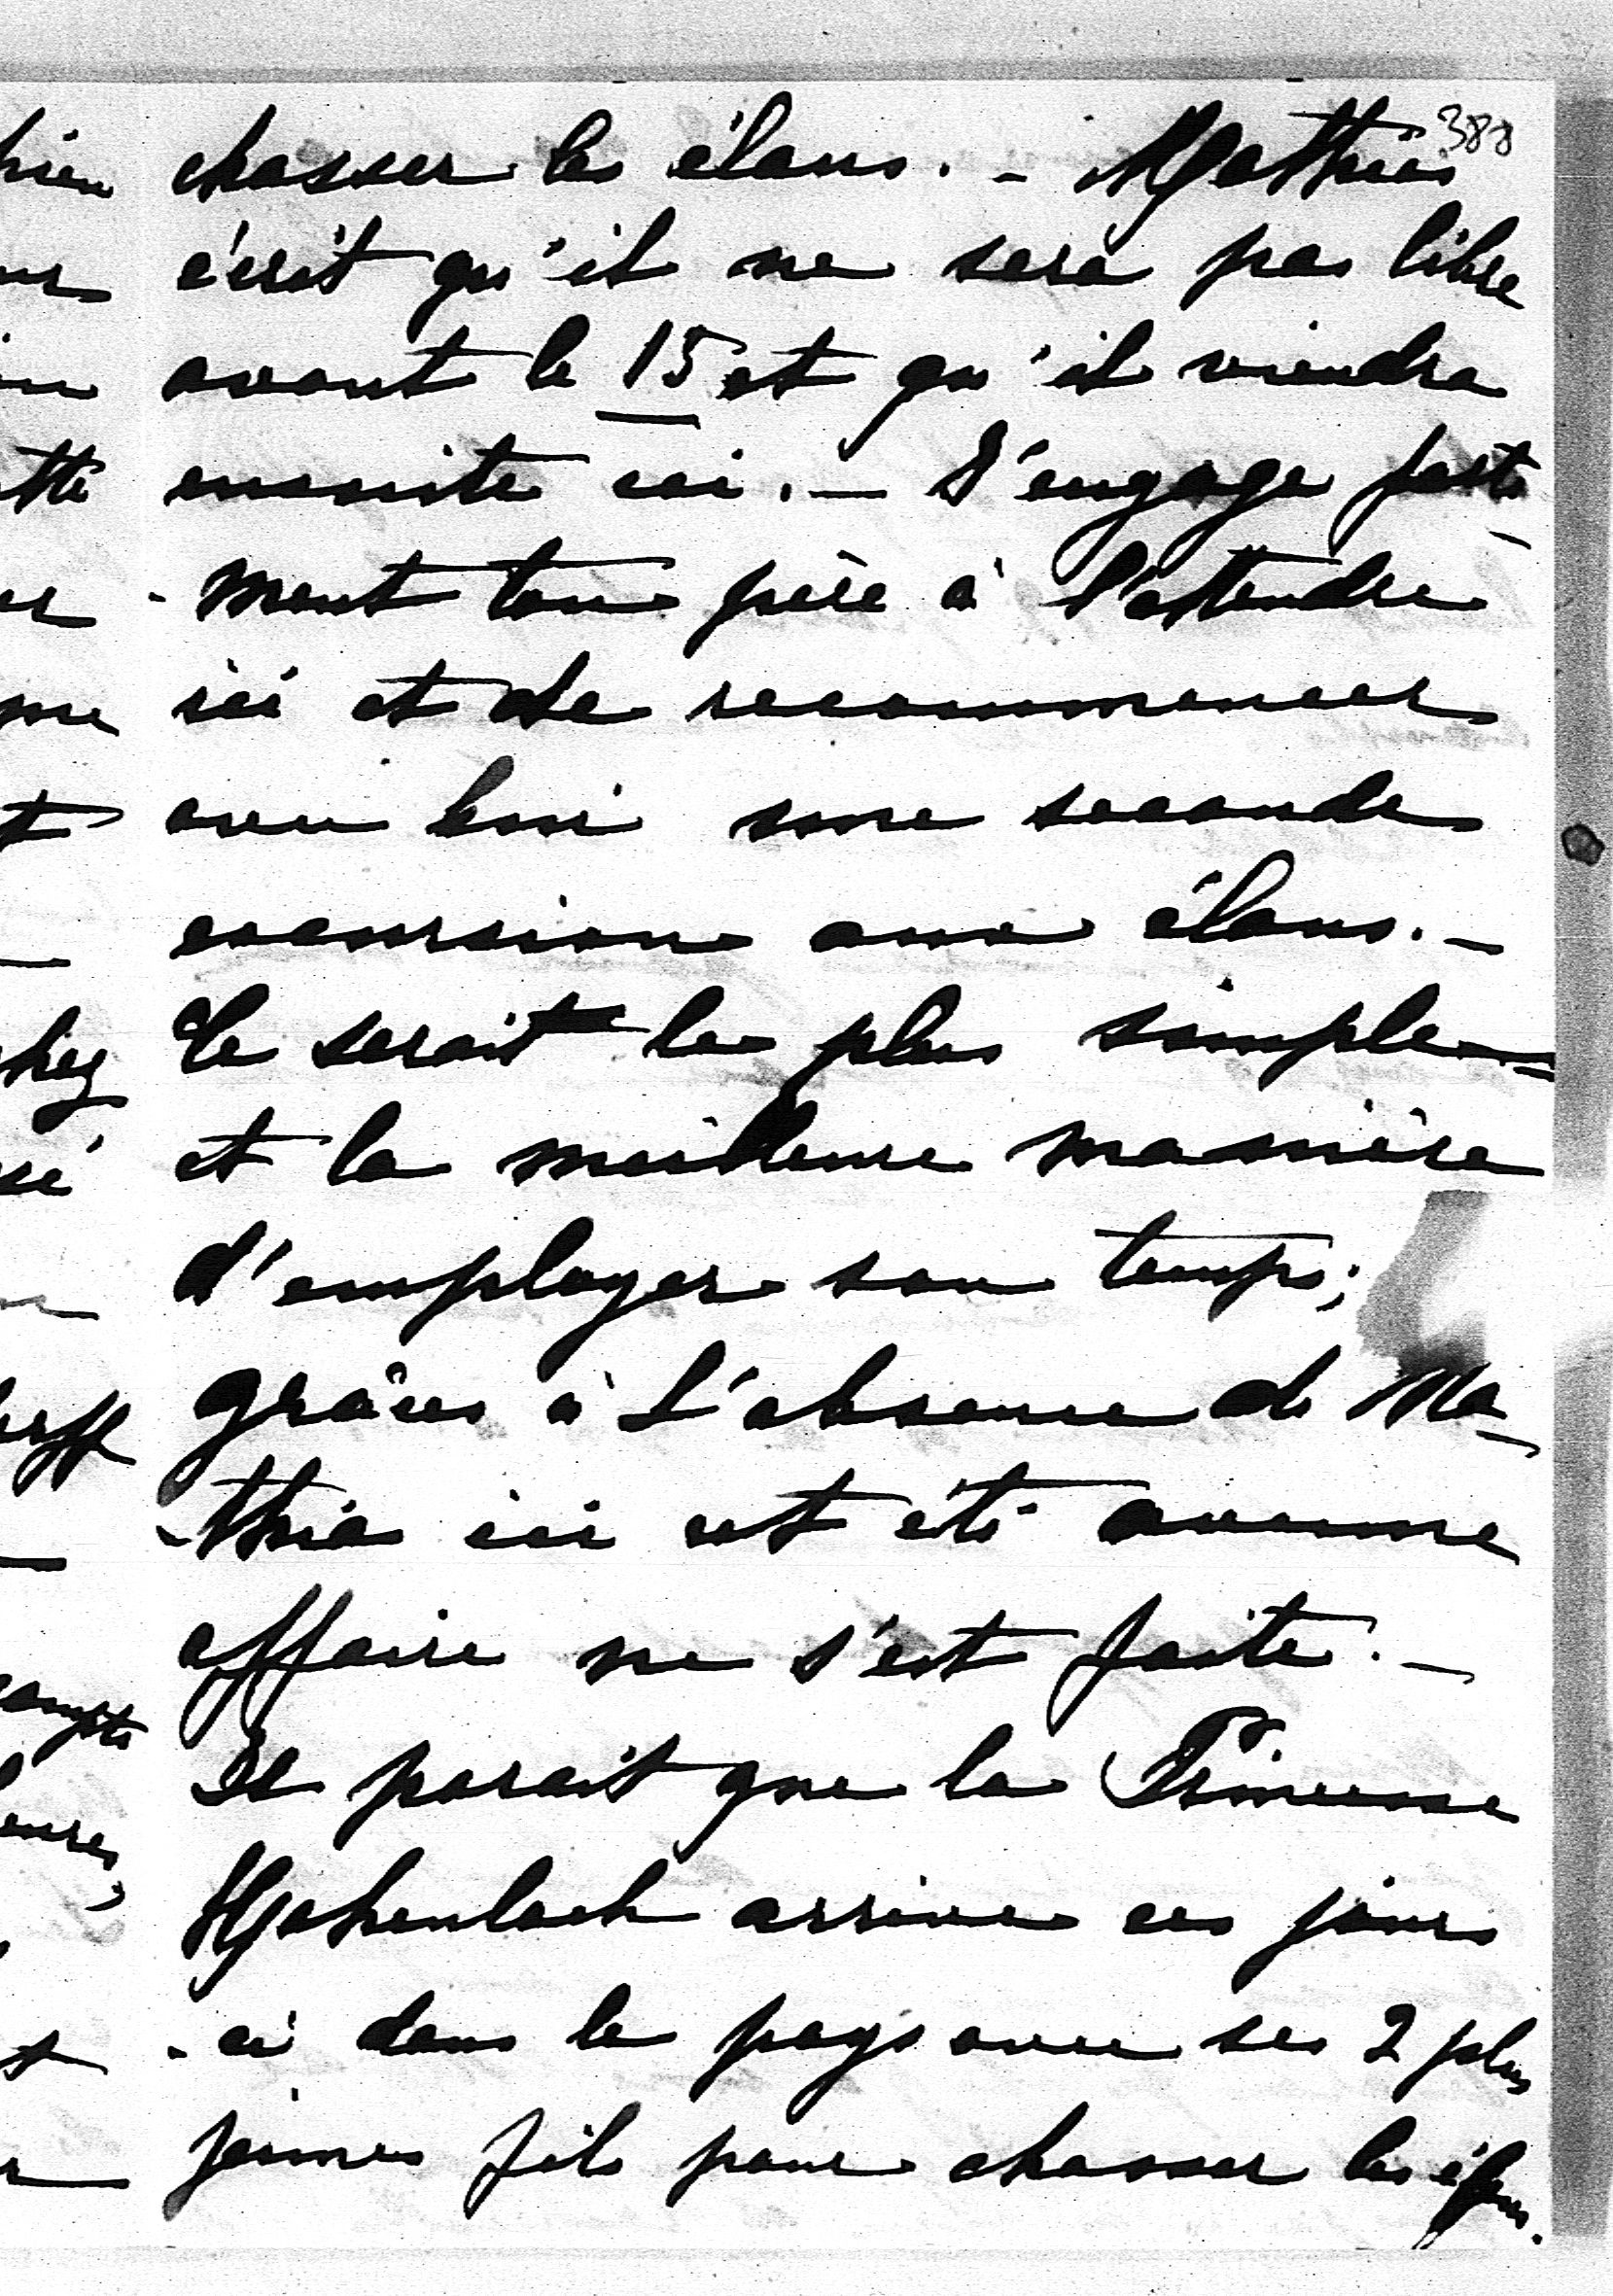 388
chasser les élans. - Mathias
écrit qu'il ne sera pas libre
avant le 15 et qu'il viendra
ensuite ici. - J'engage forte
-ment ton père à l'attendre
ici et de recommencer
avec lui une seconde
excursion aux élans. -
Ce serait le plus simple
et la meilleure manière
d'employer son temps;
grâces à l'absence de Ma-
-thia ici cet été aucune
affaire ne s'est faite. -
Il parait que la Princesse
Hohenloeh arrive ces jours
-ci dans le pays avec ses 2 plus
jeunes fils pour chasser les élans.